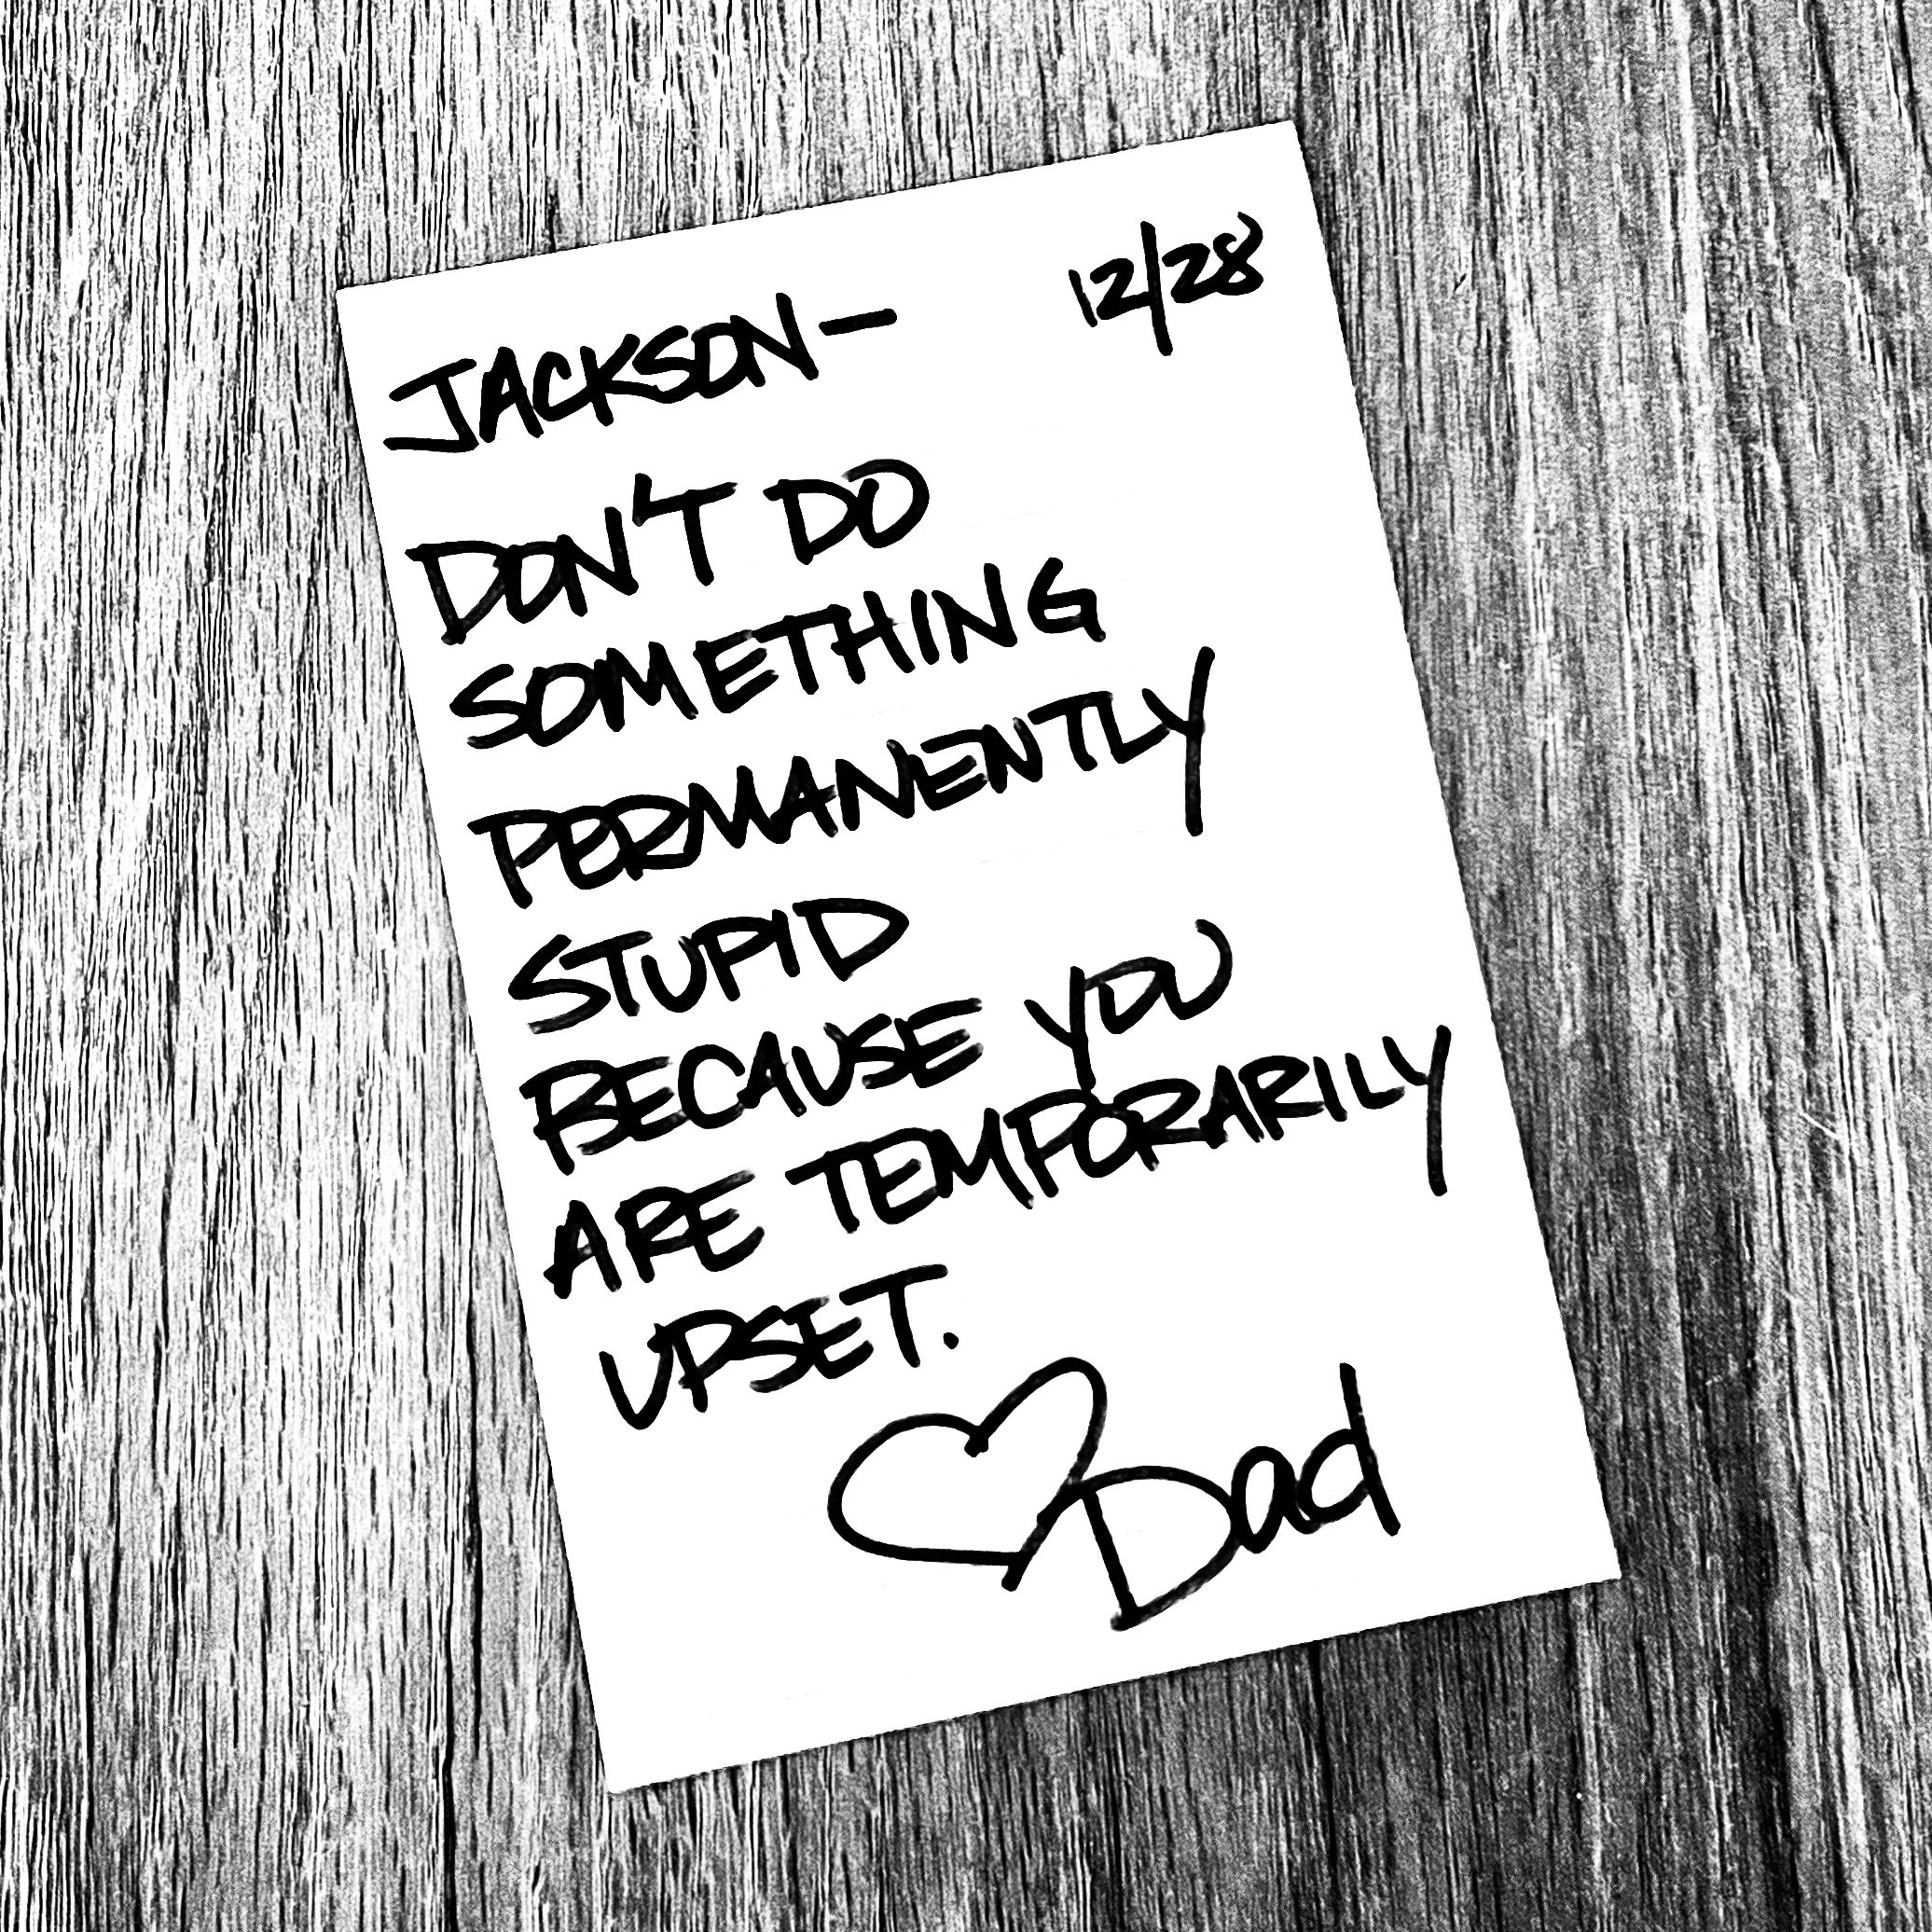 JACKSON— 12/28
DON'T DO
SOMETHING
PERMANENTLY
STUPID
BECAUSE YOU
ARE TEMPORARILY
UPSET.
♡Dad